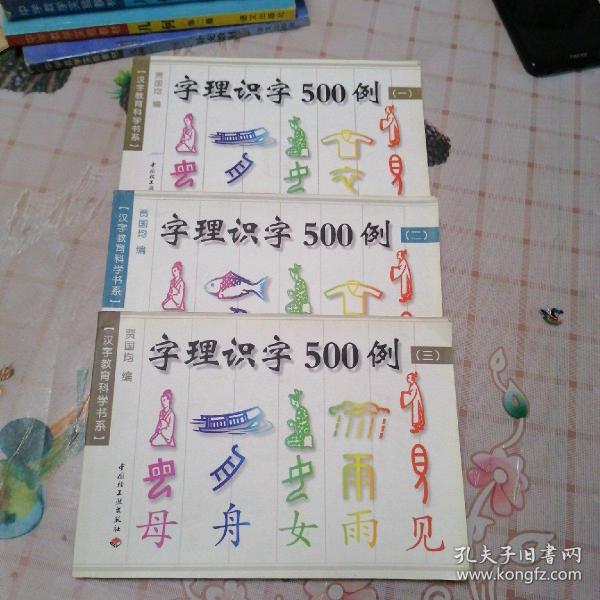 几何
语文出版社
【汉字教育科学书系】
贾国均 编
字理识字500例
(一)
【汉字教育科学书系】
贾国均 编
字理识字500例
(二)
【汉字教育科学书系】
贾国均 编
字理识字500例
(三)
母 舟 女 雨 见
中国轻工业出版社
孔夫子旧书网
www.kongfz.com